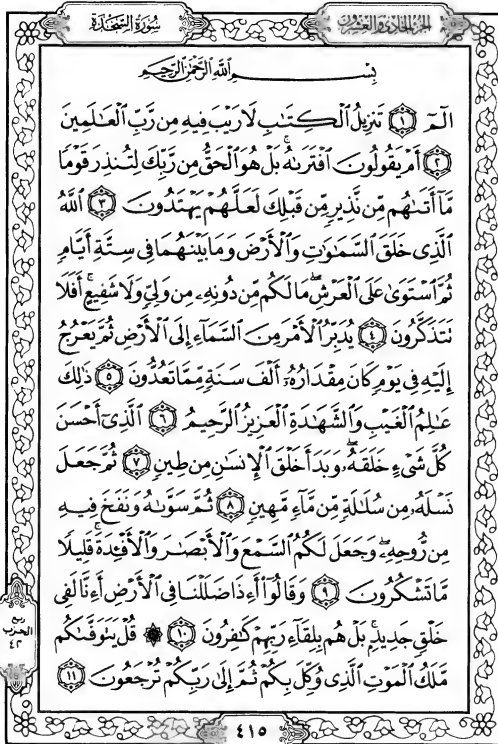 سُورَةُ السَّجْدَةِ
الجُزْءُ الحَادِي وَالعِشْرُون
بِسْمِ ٱللَّهِ ٱلرَّحْمَٰنِ ٱلرَّحِيمِ
الٓمٓ ١ تَنزِيلُ ٱلْكِتَٰبِ لَا رَيْبَ فِيهِ مِن رَّبِّ ٱلْعَٰلَمِينَ
٢ أَمْ يَقُولُونَ ٱفْتَرَىٰهُ ۚ بَلْ هُوَ ٱلْحَقُّ مِن رَّبِّكَ لِتُنذِرَ قَوْمًا
مَّآ أَتَىٰهُم مِّن نَّذِيرٍ مِّن قَبْلِكَ لَعَلَّهُمْ يَهْتَدُونَ ٣ ٱللَّهُ
ٱلَّذِى خَلَقَ ٱلسَّمَٰوَٰتِ وَٱلْأَرْضَ وَمَا بَيْنَهُمَا فِى سِتَّةِ أَيَّامٍ
ثُمَّ ٱسْتَوَىٰ عَلَى ٱلْعَرْشِ ۖ مَا لَكُم مِّن دُونِهِۦ مِن وَلِىٍّ وَلَا شَفِيعٍ ۚ أَفَلَا
تَتَذَكَّرُونَ ٤ يُدَبِّرُ ٱلْأَمْرَ مِنَ ٱلسَّمَآءِ إِلَى ٱلْأَرْضِ ثُمَّ يَعْرُجُ
إِلَيْهِ فِى يَوْمٍ كَانَ مِقْدَارُهُۥٓ أَلْفَ سَنَةٍ مِّمَّا تَعُدُّونَ ٥ ذَٰلِكَ
عَٰلِمُ ٱلْغَيْبِ وَٱلشَّهَٰدَةِ ٱلْعَزِيزُ ٱلرَّحِيمُ ٦ ٱلَّذِىٓ أَحْسَنَ
كُلَّ شَىْءٍ خَلَقَهُۥ ۖ وَبَدَأَ خَلْقَ ٱلْإِنسَٰنِ مِن طِينٍ ٧ ثُمَّ جَعَلَ
نَسْلَهُۥ مِن سُلَٰلَةٍ مِّن مَّآءٍ مَّهِينٍ ٨ ثُمَّ سَوَّىٰهُ وَنَفَخَ فِيهِ
مِن رُّوحِهِۦ ۖ وَجَعَلَ لَكُمُ ٱلسَّمْعَ وَٱلْأَبْصَٰرَ وَٱلْأَفْـِٔدَةَ ۚ قَلِيلًا
مَّا تَشْكُرُونَ ٩ وَقَالُوٓا۟ أَءِذَا ضَلَلْنَا فِى ٱلْأَرْضِ أَءِنَّا لَفِى
خَلْقٍ جَدِيدٍۭ ۚ بَلْ هُم بِلِقَآءِ رَبِّهِمْ كَٰفِرُونَ ١٠ ۞ قُلْ يَتَوَفَّىٰكُم
مَّلَكُ ٱلْمَوْتِ ٱلَّذِى وُكِّلَ بِكُمْ ثُمَّ إِلَىٰ رَبِّكُمْ تُرْجَعُونَ ١١
ربع
الحزب
٤٢
٤١٥